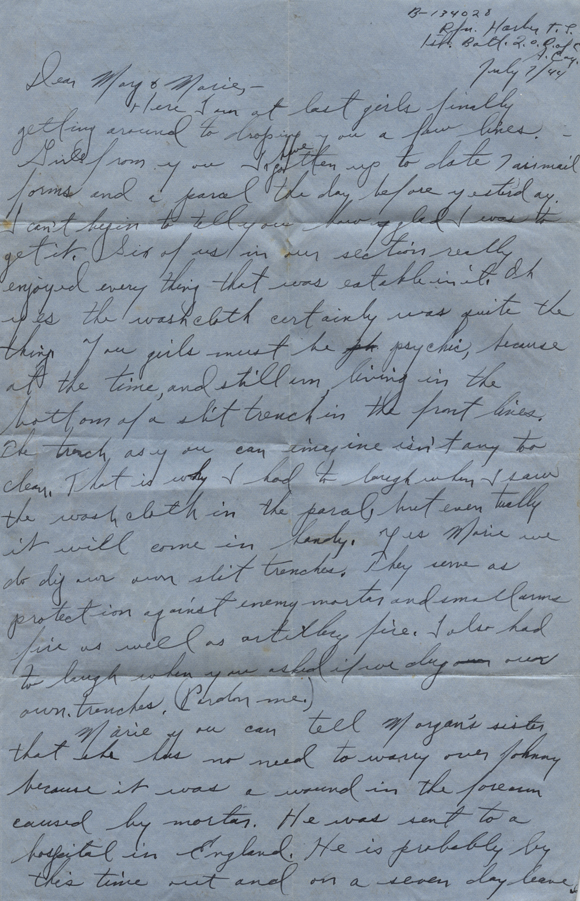 B-134028
Rfn. Hawley T. S.
1st. Batt. Q.O.R. of C
July 7/44
Dear Mary & Marie,—
Here I am at last girls finally
getting around to droping you a few lines. -
Girls from you I have got then up to date 7 airmail
forms and a parcel the day before yesterday.
I can't begin to tell you how glad I was to
get it. Six of us in our section really
enjoyed every thing that was eatable in it. Oh
yes the washcloth certainly was quite the
thing. You girls must be psychic, because
at the time, and still am, living in the
bottom of a slit trench in the front lines.
The trench as you can imagine isn't any too
clean. That is why I had to laugh when I saw
the wash cloth in the parcel, but even tually
it will come in handy. Yes Marie we
do dig our own slit trenches. They serve as
protection against enemy mortar and small arms
fire as well as artillery fire. I also had
to laugh when you asked if we dug our
own. trenches. (Pardon me.)
Marie you can tell Morgan's sister
that she has no need to worry over Johnny
because it was a wound in the forearm
caused by mortar. He was sent to a
hospital in England. He is probably by
this time out and on a seven day leave,